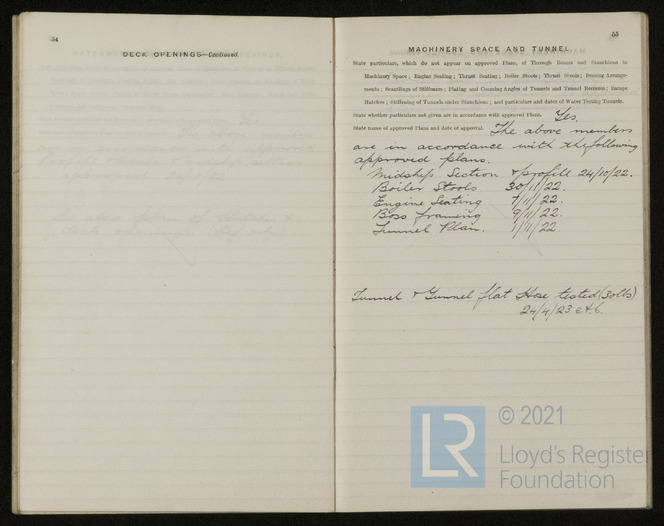 54
DECK OPENINGS—Continued.
55
MACHINERY SPACE AND TUNNEL
State particulars, which do not appear on approved Plans, of Through Beams and Stanchions in
Machinery Space; Engine Seating; Thrust Seating; Boiler Stools; Thrust Stools; Bossing Arrange-
ments; Scantlings of Stiffeners; Plating and Coaming Angles of Tunnels and Tunnel Recesses; Escape
Hatches; Stiffening of Tunnels under Stanchions; and particulars and dates of Water Testing Tunnels.
State whether particulars not given are in accordance with approved Plans. Yes.
State name of approved Plans and date of approval. The above members
are in accordance with the following
approved plans.
Midships Section & profile 24/10/22.
Boiler Stools 30/11/22.
Engine Seating 7/11/22.
Boss framing 9/11/22.
Tunnel Plan. 1/11/22
Tunnel & Tunnel flat Hose tested (30lbs)
24/4/23
LR
© 2021
Lloyd's Register
Foundation